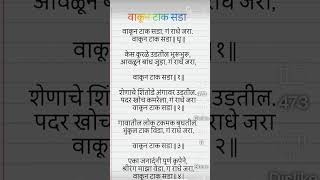 वाकून टाक सडा
वाकून टाक सडा, गं राधे जरा.
वाकून टाक सडा॥धृ॥
केस कुरळे उडतील भुरूभुरू,
आवळून बांध जुडा, गं राधे जरा,
वाकून टाक सडा॥१॥
शेणाचे शिंतोडे अंगावर उडतील.
पदर खोच कमरेला, गं राधे जरा
वाकून टाक सडा॥२॥
गावातील लोक टकमक बघतील
थुंकून टाक विडा, गं राधे जरा,
वाकून टाक सडा॥३॥
एका जनार्दनी पूर्ण कृपेने,
श्रीरंग माझा वेडा, गं राधे जरा,
वाकून टाक सडा॥४॥
473
Dislike